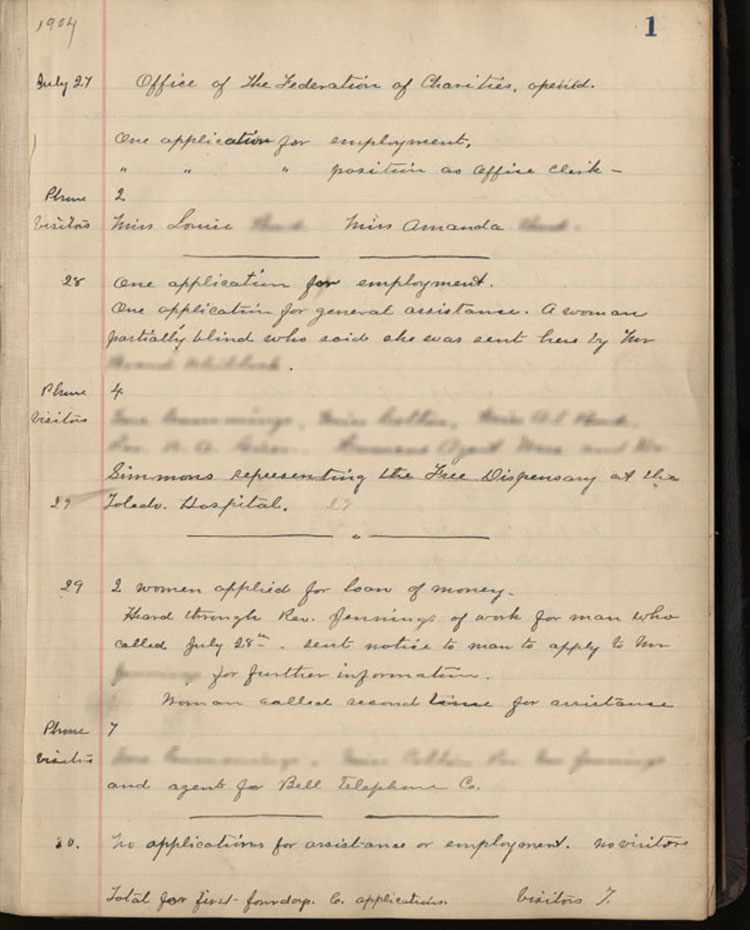 1904
1
July 27 Office of the Federation of Charities, opened.
One application for employment.
" " " position as office clerk —
Phone 2
Visitors Miss Louise Miss Amanda
28 One application for employment.
One application for general assistance. A woman
partially blind who said she was sent here by Mr
Phone 4
Visitors
Simmons representing the Free Dispensary at the
29 Toledo. Hospital. 29
29 2 women applied for loan of money.
Heard through Rev. Jennings of work for man who
called July 28th. sent notice to man to apply to Mr
for further information.
Woman called second time for assistance
Phone 7
Visitors
and agent for Bell Telephone Co.
30. No applications for assistance or employment. no visitors
Total for first four days. 6. applications. Visitors 7.